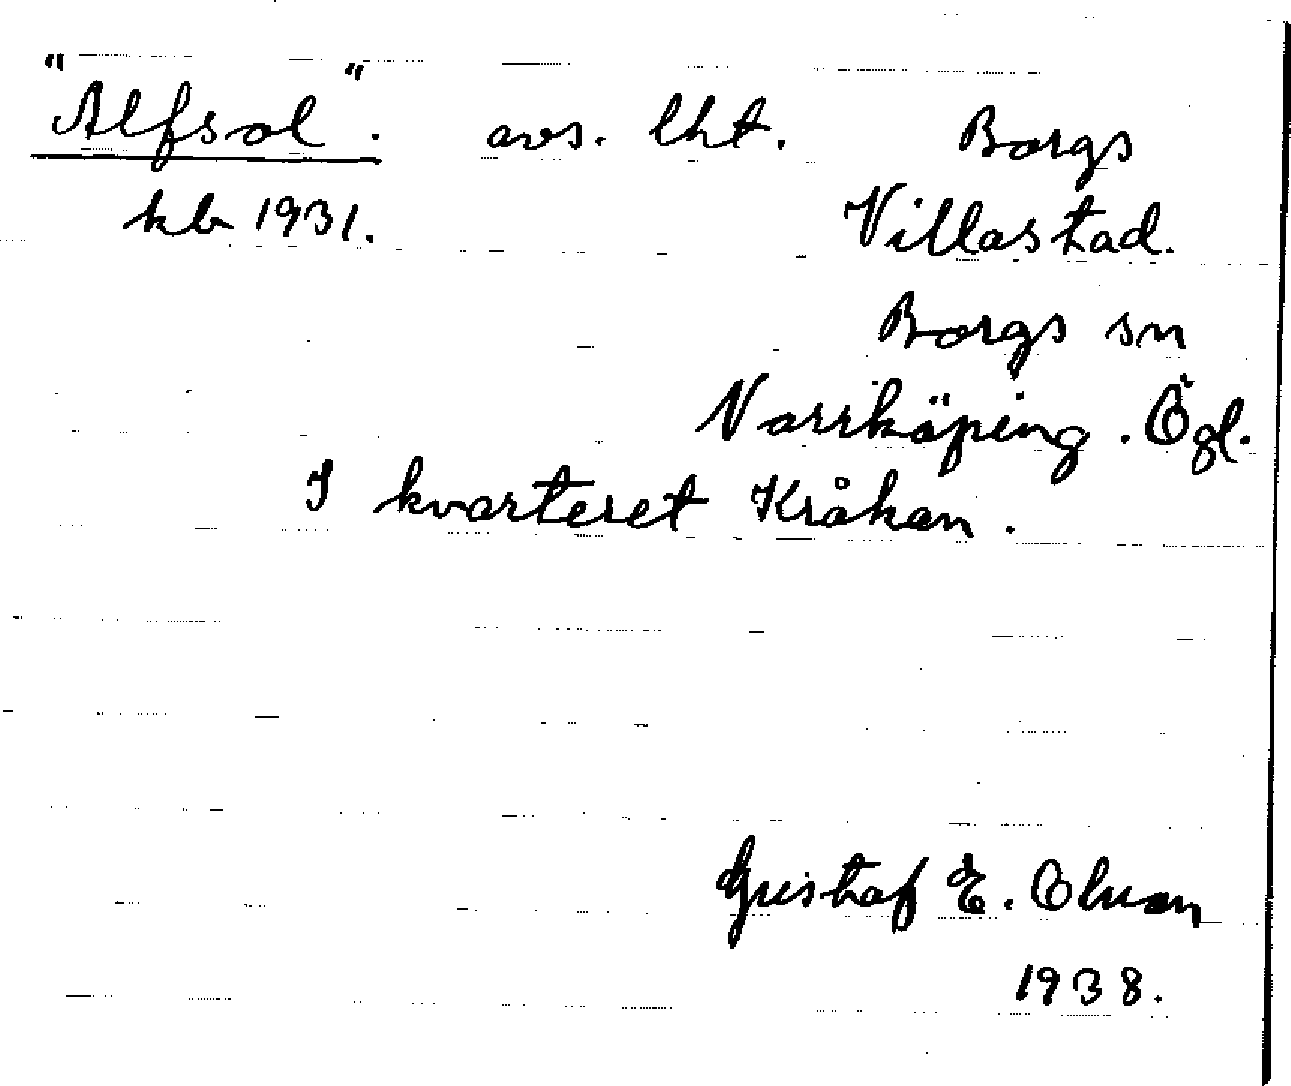 "Alfsol". avs. lht. Borgs
kb 1931. Villastad.
Borgs sn
Norrköping. Ögl.
I kvarteret Kråkan.
Gustaf E. Olsson
1938.